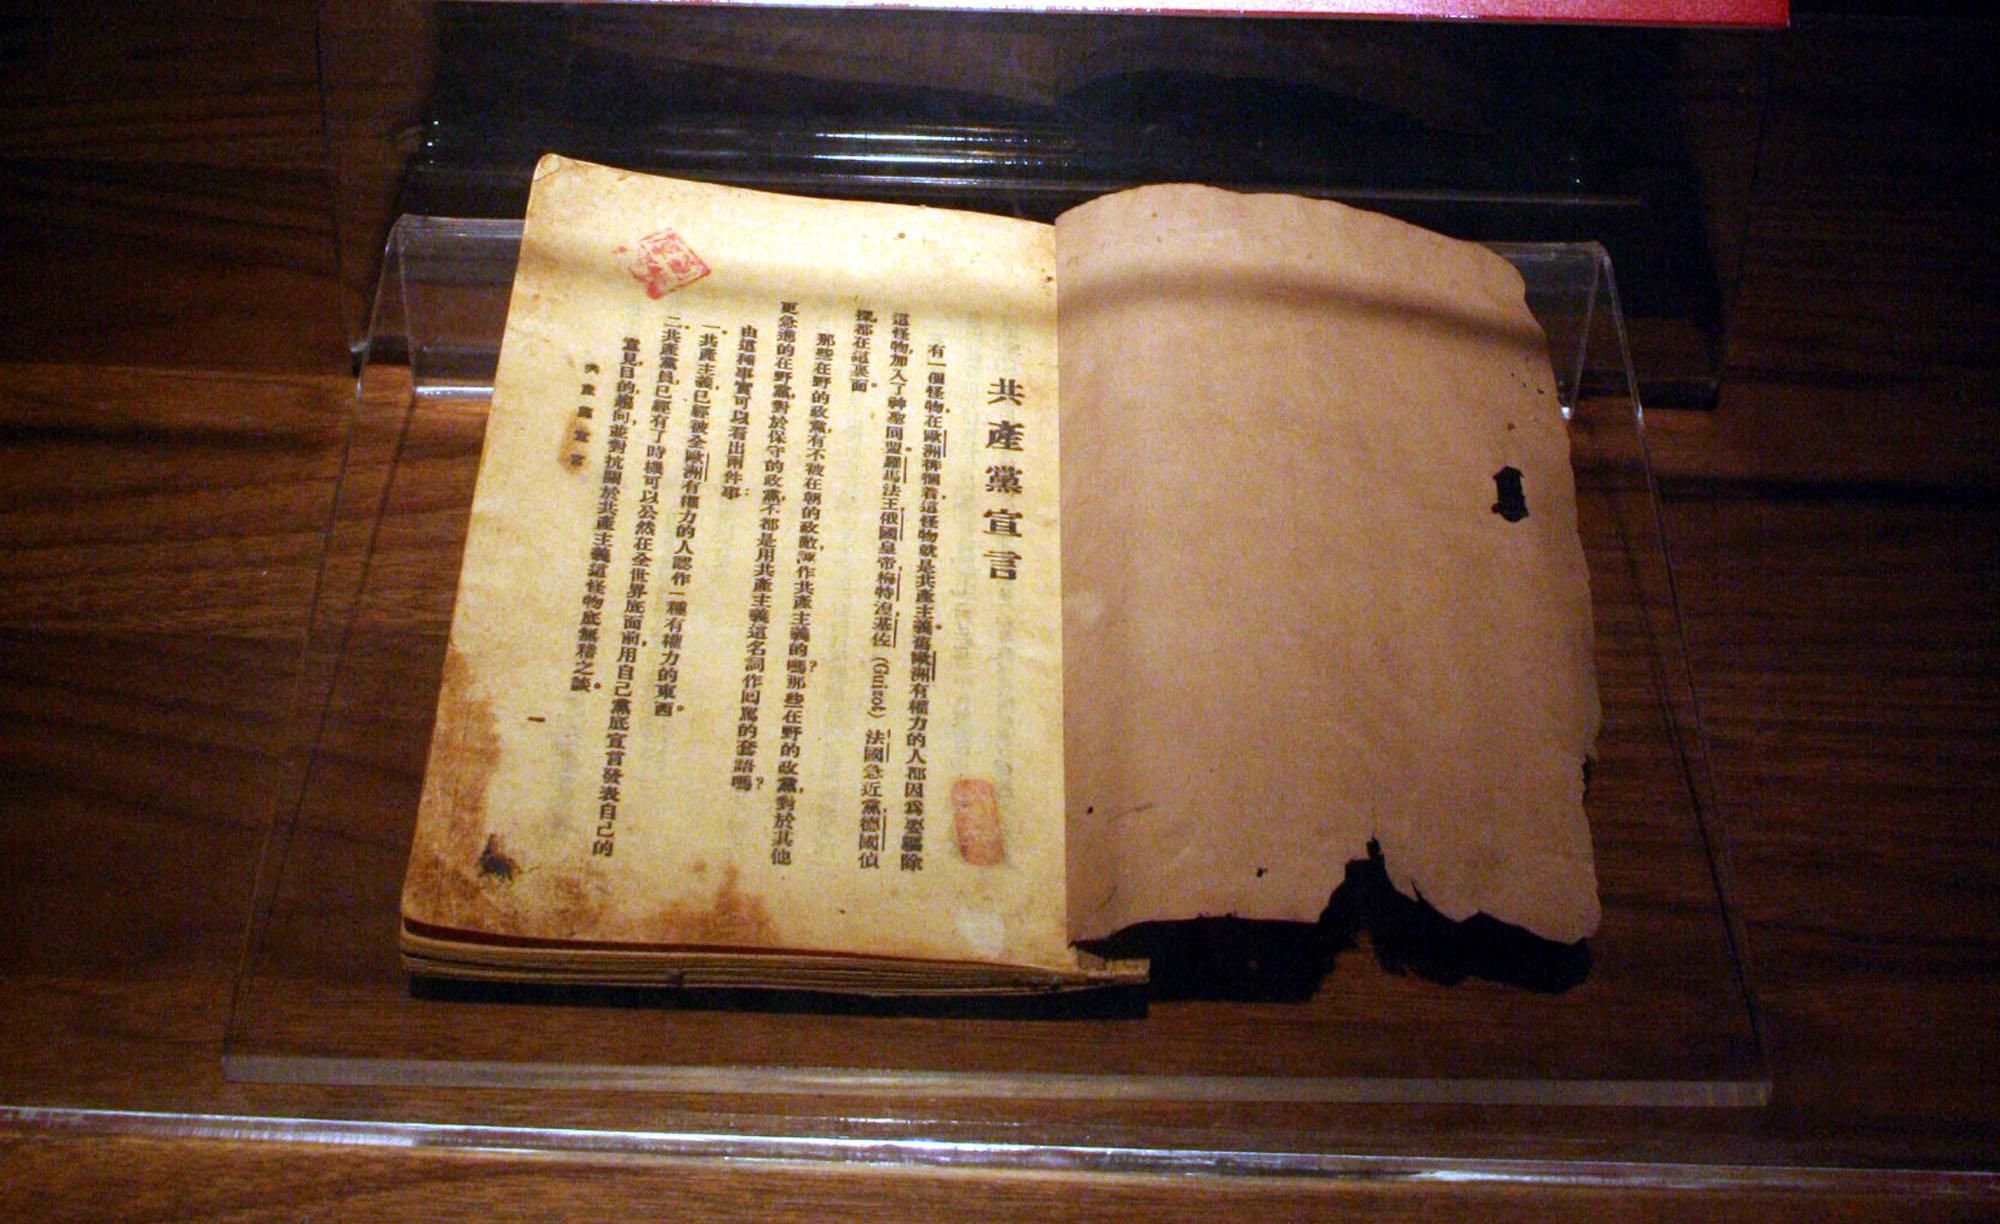 共產黨宣言
有一個怪物，在歐洲徘徊着，這怪物就是共產主義。舊歐洲有權力的人都因爲要驅除
這怪物，加入了神聖同盟。羅馬法王，俄國皇帝，梅特湼，基佐（Guizot），法國急近黨，德國偵
探，都在這裏面。
那些在野的政黨，有不被在朝的政敵，誣作共產主義的嗎？那些在野的政黨，對於其他
更急進的在野黨，對於保守的政黨，不都是用共產主義這名詞作回罵的套語嗎？
由這種事實可以看出兩件事：
一。共產主義，已經被全歐洲有權力的人認作一種有權力的東西。
二。共產黨員，已經有了時機可以公然在全世界底面前，用自己黨底宣言發表自己的
意見，目的，趨向，並對抗關於共產主義這怪物底無稽之談。
共產黨宣言
一